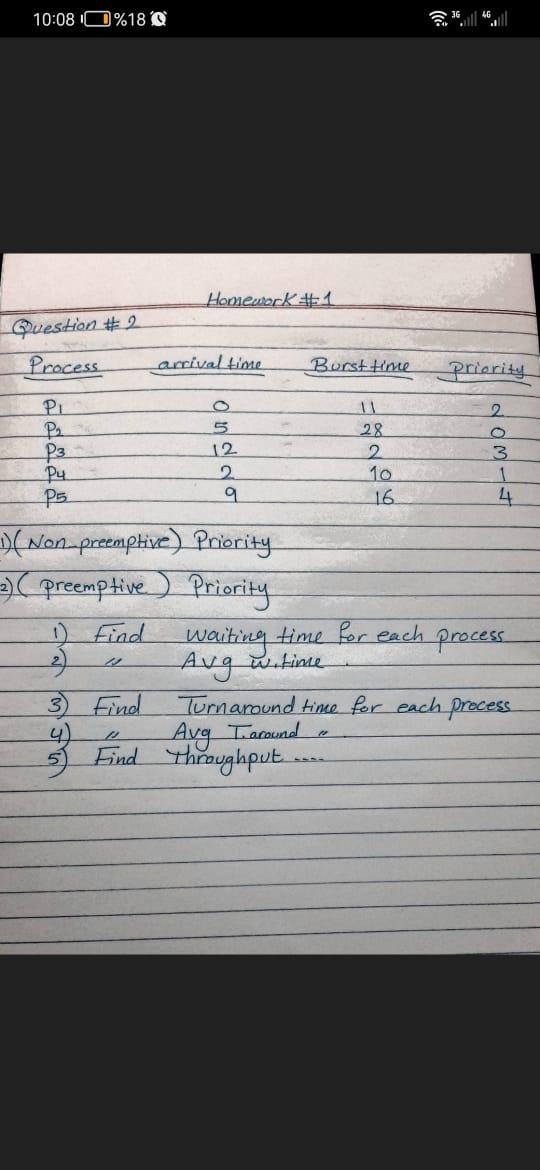 10:08 %18 3G 4G
Homework #1
Question # 2
Process arrival time Burst time priority
P1 0 11 2
P2 5 28 0
P3 12 2 3
P4 2 10 1
P5 9 16 4
1) (Non-preemptive) Priority
2) ( preemptive ) Priority
1) Find waiting time for each process
2) 〃 Avg w.time
3) Find Turnaround time for each process
4) 〃 Avg T.around 〃
5) Find throughput ....